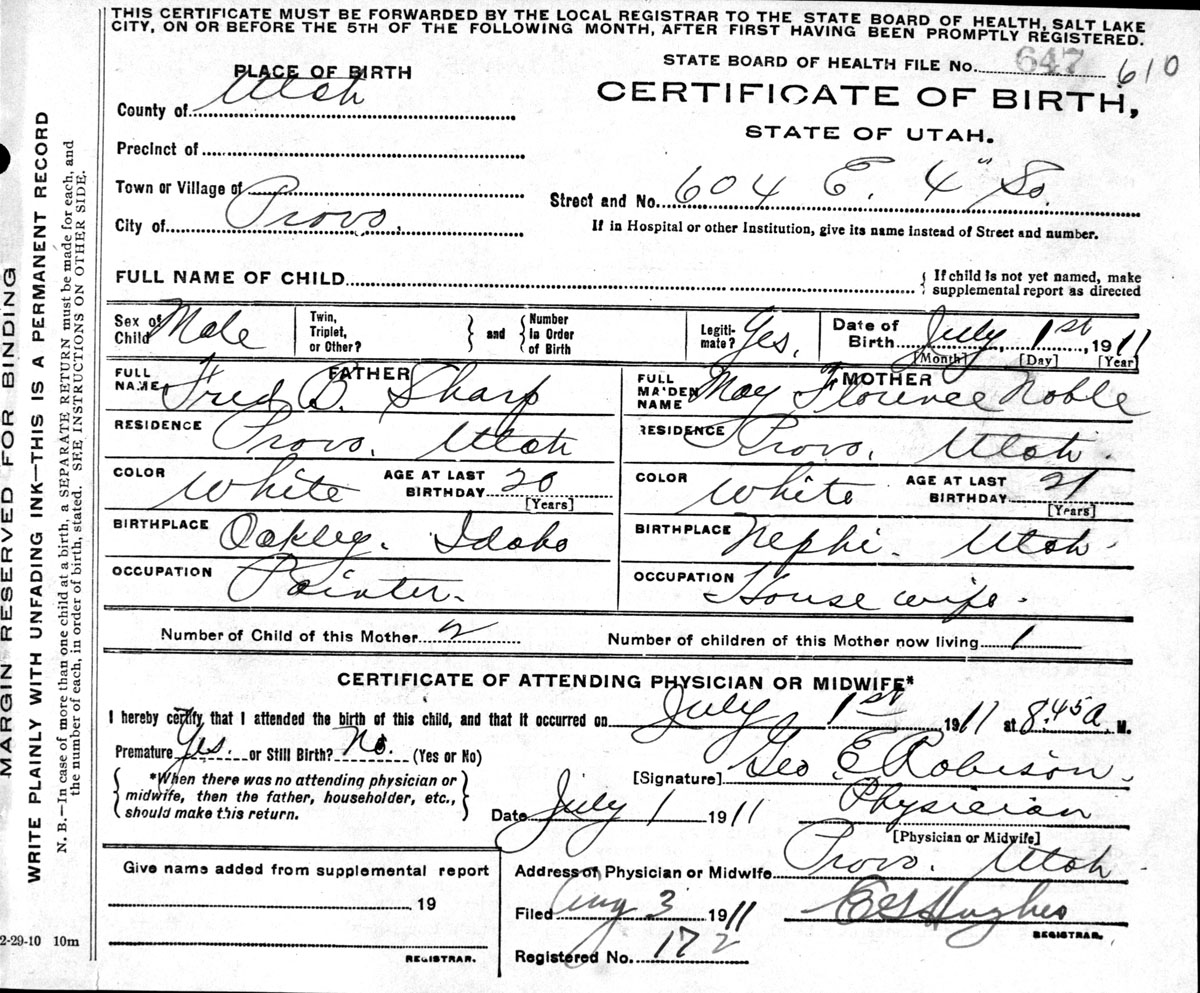 THIS CERTIFICATE MUST BE FORWARDED BY THE LOCAL REGISTRAR TO THE STATE BOARD OF HEALTH, SALT LAKE
CITY, ON OR BEFORE THE 5TH OF THE FOLLOWING MONTH, AFTER FIRST HAVING BEEN PROMPTLY REGISTERED.
STATE BOARD OF HEALTH FILE No. 647 610
PLACE OF BIRTH
CERTIFICATE OF BIRTH,
County of Utah
STATE OF UTAH.
Precinct of
Town or Village of
Street and No. 604 E. 4" So.
City of Provo.
If in Hospital or other Institution, give its name instead of Street and number.
FULL NAME OF CHILD
{ If child is not yet named, make
supplemental report as directed
Sex of Child Male
Twin, Triplet, or Other? } and { Number In Order of Birth
Legiti-mate? Yes.
Date of Birth July 1st, 1911
[Month] [Day] [Year]
FATHER
FULL NAME Fred B. Sharp
RESIDENCE Provo. Utah
COLOR White
AGE AT LAST BIRTHDAY 20
[Years]
BIRTHPLACE Oakley. Idaho
OCCUPATION Painter.
MOTHER
FULL MAIDEN NAME May Florence Noble
RESIDENCE Provo. Utah.
COLOR White
AGE AT LAST BIRTHDAY 21
[Years]
BIRTHPLACE Nephi. Utah.
OCCUPATION House wife.
Number of Child of this Mother 2
Number of children of this Mother now living 1
CERTIFICATE OF ATTENDING PHYSICIAN OR MIDWIFE*
I hereby certify, that I attended the birth of this child, and that it occurred on July 1st 1911 at 8.45 a. M.
Premature Yes. or Still Birth? No. (Yes or No)
{ *When there was no attending physician or
midwife, then the father, householder, etc.,
should make this return. }
[Signature] Geo E Robison.
Date July 1 1911
Physician
[Physician or Midwife]
Address of Physician or Midwife Provo. Utah
Filed Aug 3 1911
E G Hughes
REGISTRAR.
Registered No. 172
Give name added from supplemental report
19
REGISTRAR.
MARGIN RESERVED FOR BINDING
WRITE PLAINLY WITH UNFADING INK—THIS IS A PERMANENT RECORD
N. B.—In case of more than one child at a birth, a SEPARATE RETURN must be made for each, and
the number of each, in order of birth, stated. SEE INSTRUCTIONS ON OTHER SIDE.
2-29-10 10m